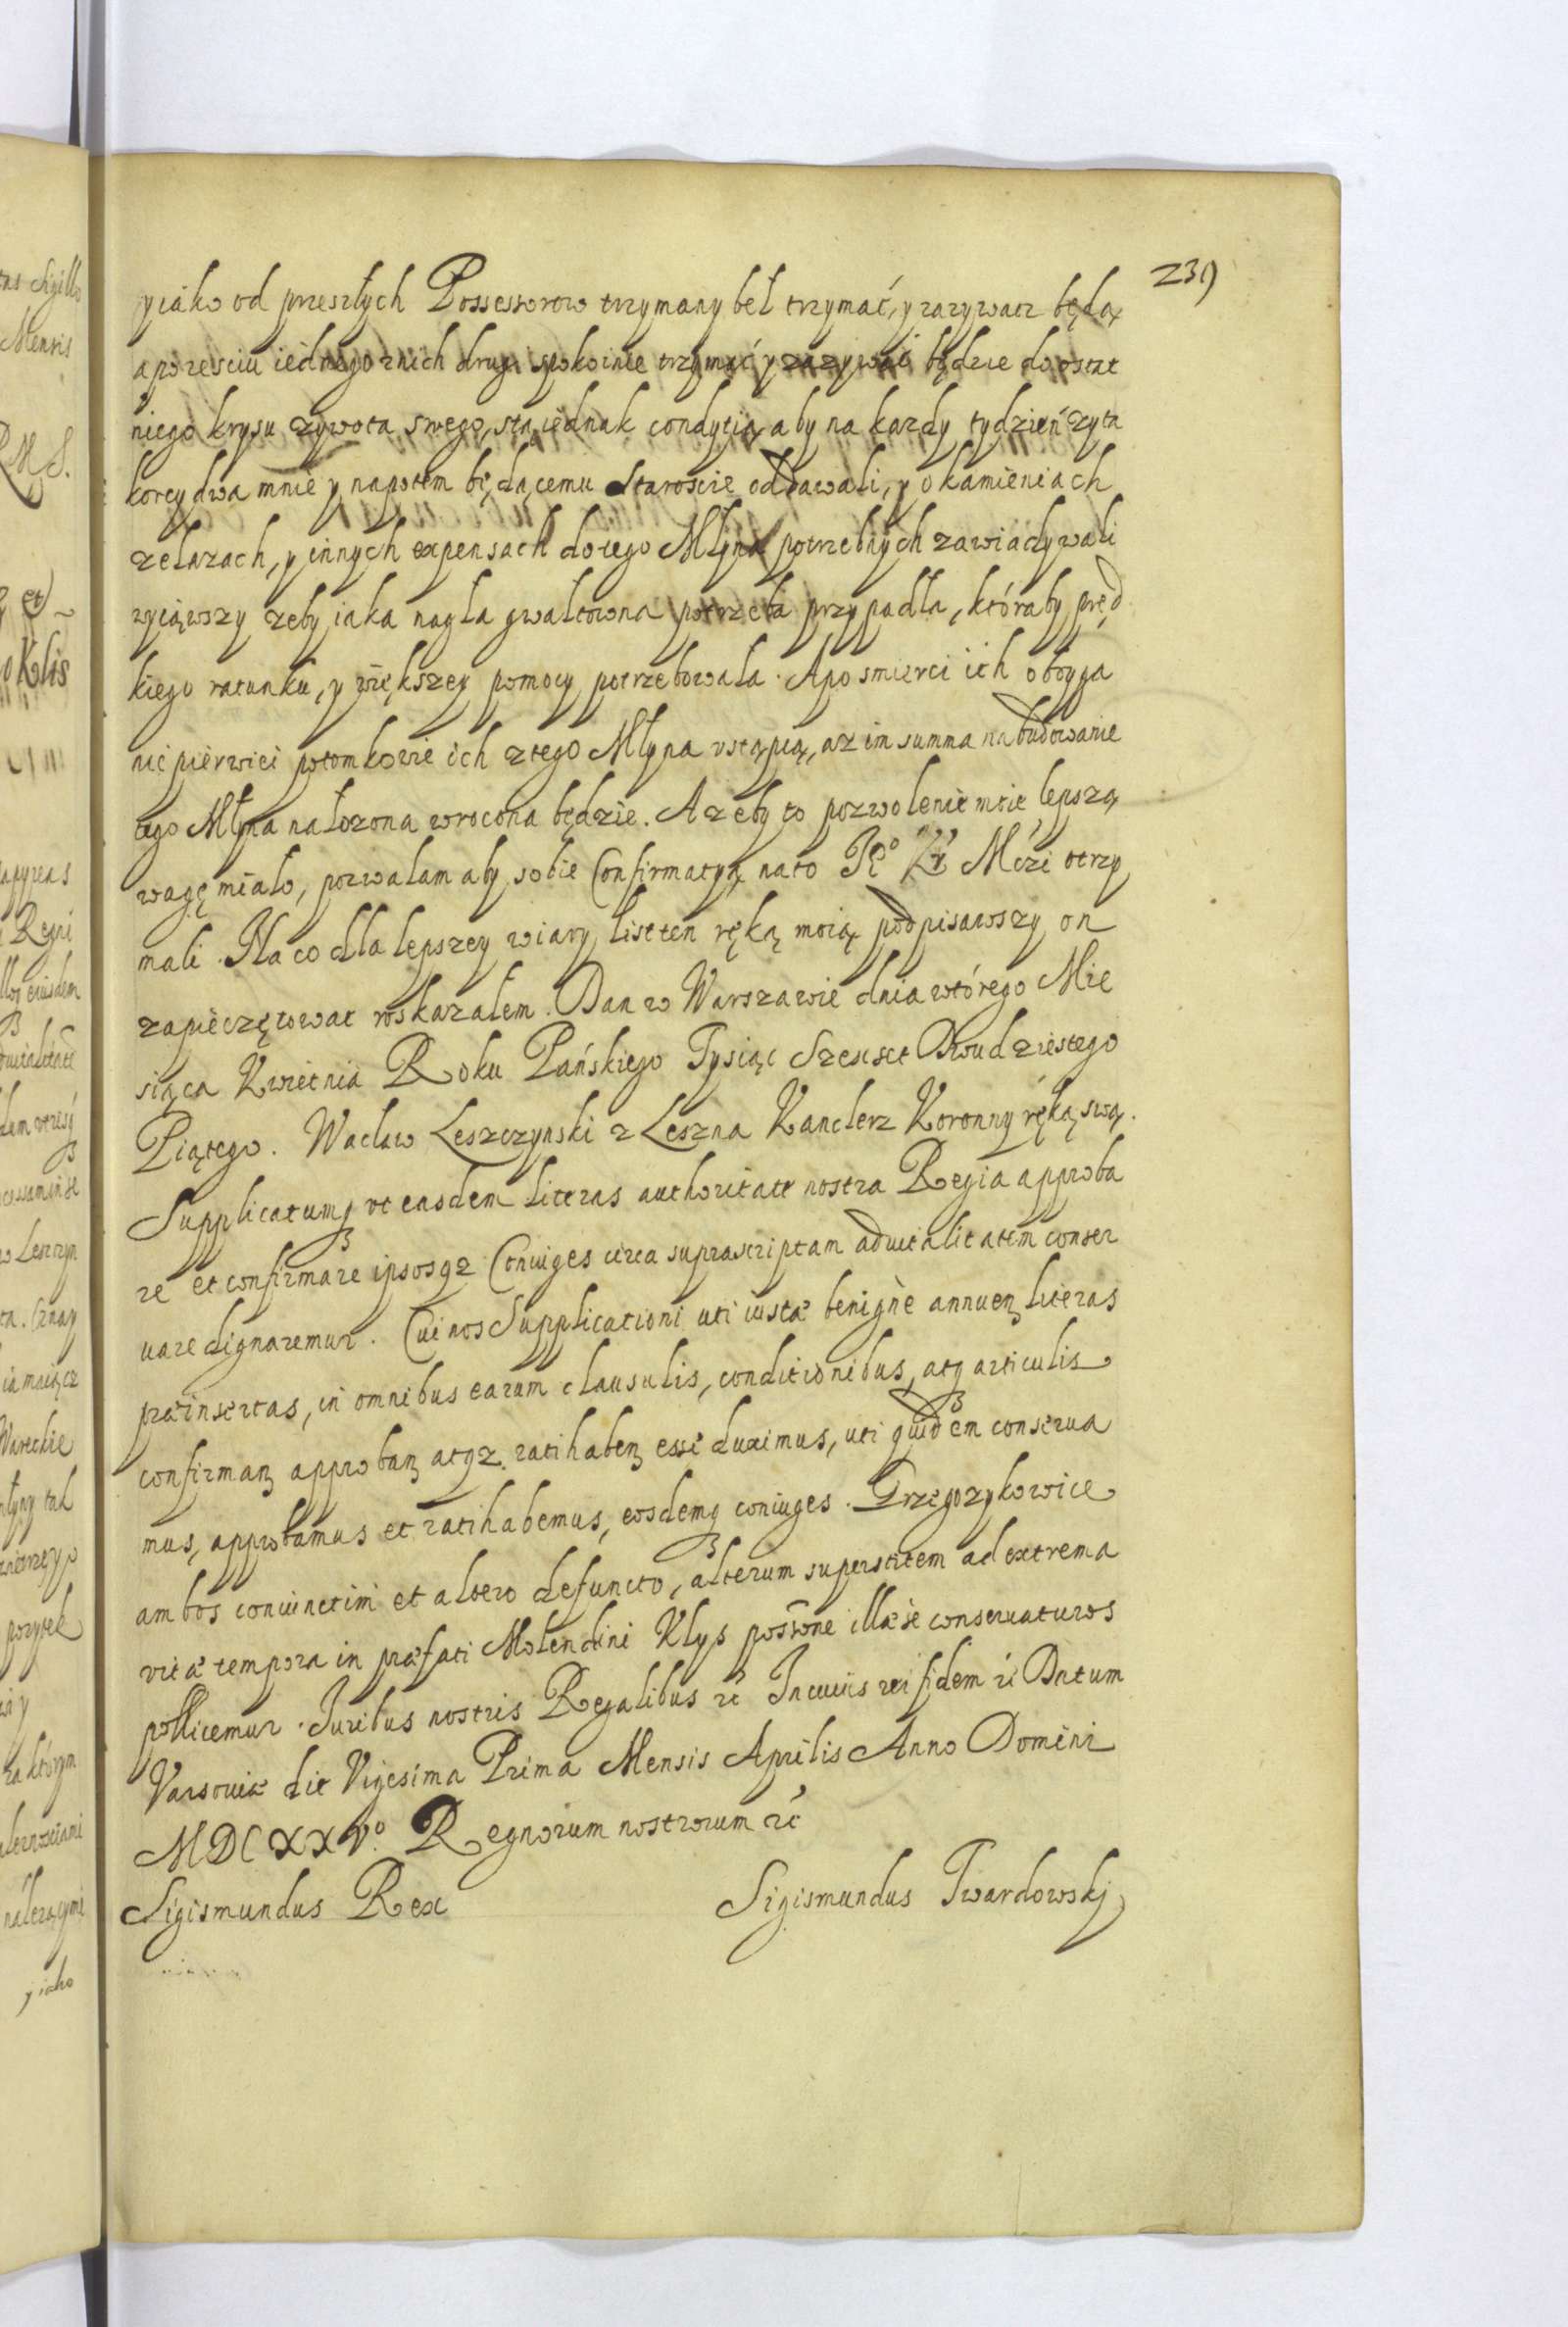 239
yiako od przeszłych Possessorow trzymany beł trzymać, y zazywacz będą
a po ześciu iednego z nich drugi spokoinie trzymać y zazywać będzie do ostat
niego krysu zywota swego, stą iednak condytią aby na kazdy tydzień zyta
korcy dwa mnie y napotem będącemu Staroscie oddawali, y o kamieniach
zelazach, y innych expensach do tego Młyna potrzebnych zawiadywali
wyiąwszy zeby iaka nagła gwałtowna potrzeba przypadła, któraby pręd
kiego ratunku, y większey pomocy potrzebowała. Apo smierci ich oboyga
nie pierwiei potomkowie ich z tego Młyna ustąpią, az im summa na budowanie
tego Młyna nałozona wrocona będzie. A zeby to pozwolenie moie lepszą
wagę miało, pozwalam aby sobie Confirmatyą na to Mćzi otrzy
mali. Na co dla lepszey wiary list ten ręką moią podpisawszy on
zapieczętowac roskazałem. Dan w Warszawie dnia wtórego Mie
siąca Kwietnia Roku Pańskiego Tysiąc Szescset Dwudziestego
Piątego. Wacław Leszczynski z Leszna Kanclerz Koronny ręką swą.
Supplicatumq ut easdem literas authoritate nostra Regia approba
re et confirmare ipsosqz Coniuges circa suprascriptam aduitalitatem conser
uare dignaremur. Cui nos Supplicationi uti iustæ benignè annuen literas
præinsertas, in omnibus earum clausulis, conditionibus, atq articulis
confirman approban atqz ratihaben esse duximus, uti quidem conserua
mus, approbamus et ratihabemus, eosdemq coniuges. Grzegorzykowice
ambos coniunctim et altero defuncto, alterum superstitem ad extrema
vitæ tempora in præfati Molendini Klys possone illæse conseruaturos
pollicemur. Iuribus nostris Regalibus ić In cuius rei fidem ić Datum
Varsouiæ die Vigesima Prima Mensis Aprilis Anno Domini
MDCXXVº. Regnorum nostrorum ić
Sigismundus Rex Sigismundus Twardowskj